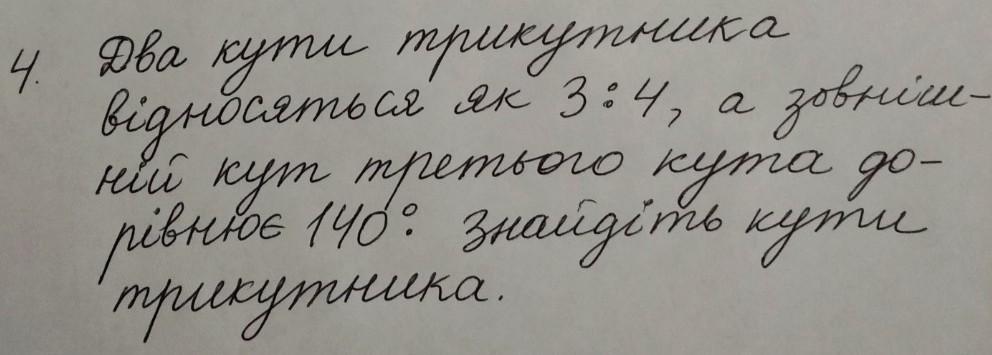 4. Два кути трикутника
відносяться як 3:4, а зовніш-
ній кут третього кута до-
рівнює 140°. Знайдіть кути
трикутника.